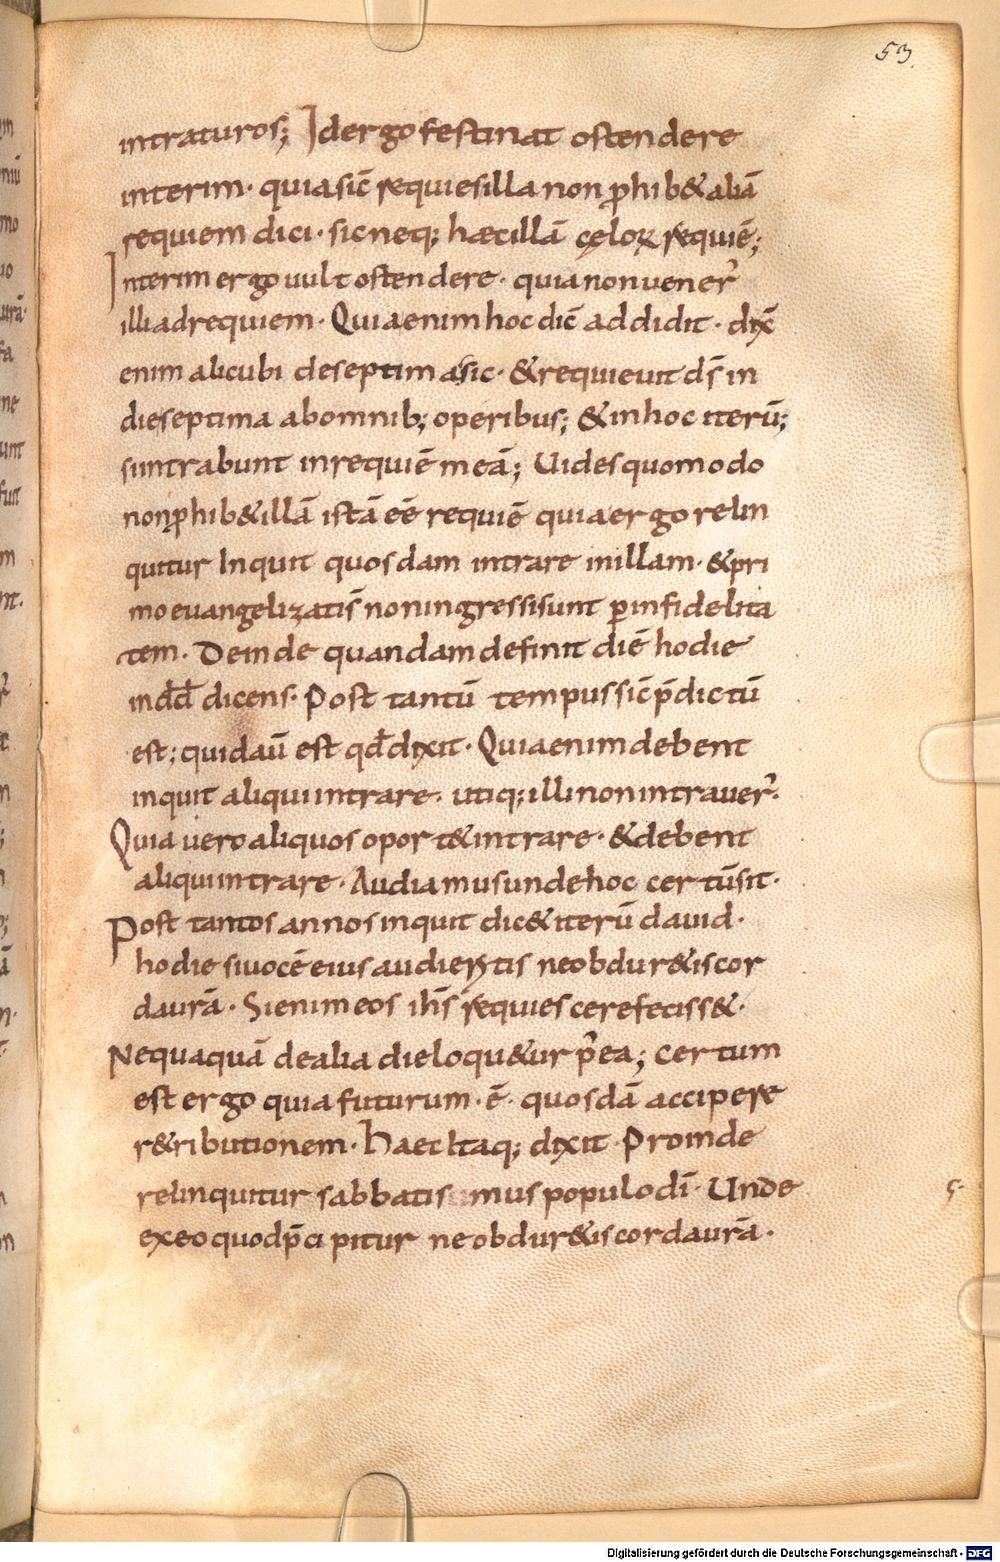 53.
intraturos; Idergo festinat ostendere
interim· quia sic̄ requies illa non ꝓhib& aliā
requiem dici· sic neq; haec illā cęloꝝ requiē;
Interim ergo uult ostendere· quia non uener̄
illi ad requiem· Quia enim hoc dic̄ addidit· dix̄
enim alicubi de septima sic· & requieuit ds̄ in
die septima ab omnib; operibus; & in hoc iterū;
si intrabunt in requiē meā; Uides quomodo
non ꝓhib& illā istā eē requiē quia ergo relin
quitur Inquit quosdam intrare in illam· & pri
mo euangelizatis̄ non ingressi sunt ꝑ infidelita
tem· Deinde quandam definit diē hodie
in dd̄ dicens· Post tantū tempus sic̄ p̄dictū
est; quid aū est qd̄ dixit· Quia enim debent
inquit aliqui intrare· utiq; illi non intrauer̄·
Quia uero aliquos oport& intrare· & debent
aliqui intrare· Audiamus unde hoc certū sit·
Post tantos annos inquit dic& iterū dauid·
hodie si uocē eius audieritis ne obdur&is cor
da urā· Si enim eos ihs̄ requiescere feciss&·
Nequaquā de alia die loqu&ur p̄ ea; Certum
est ergo quia futurum· ē· quosdā accipere
r&ributionem· haec Itaq; dixit· Proinde
relinquitur sabbatis mus populo dī· Unde
ex eo quod p̄cipitur ne obdur&is corda urā·
Digitalisierung gefördert durch die Deutsche Forschungsgemeinschaft - DFG